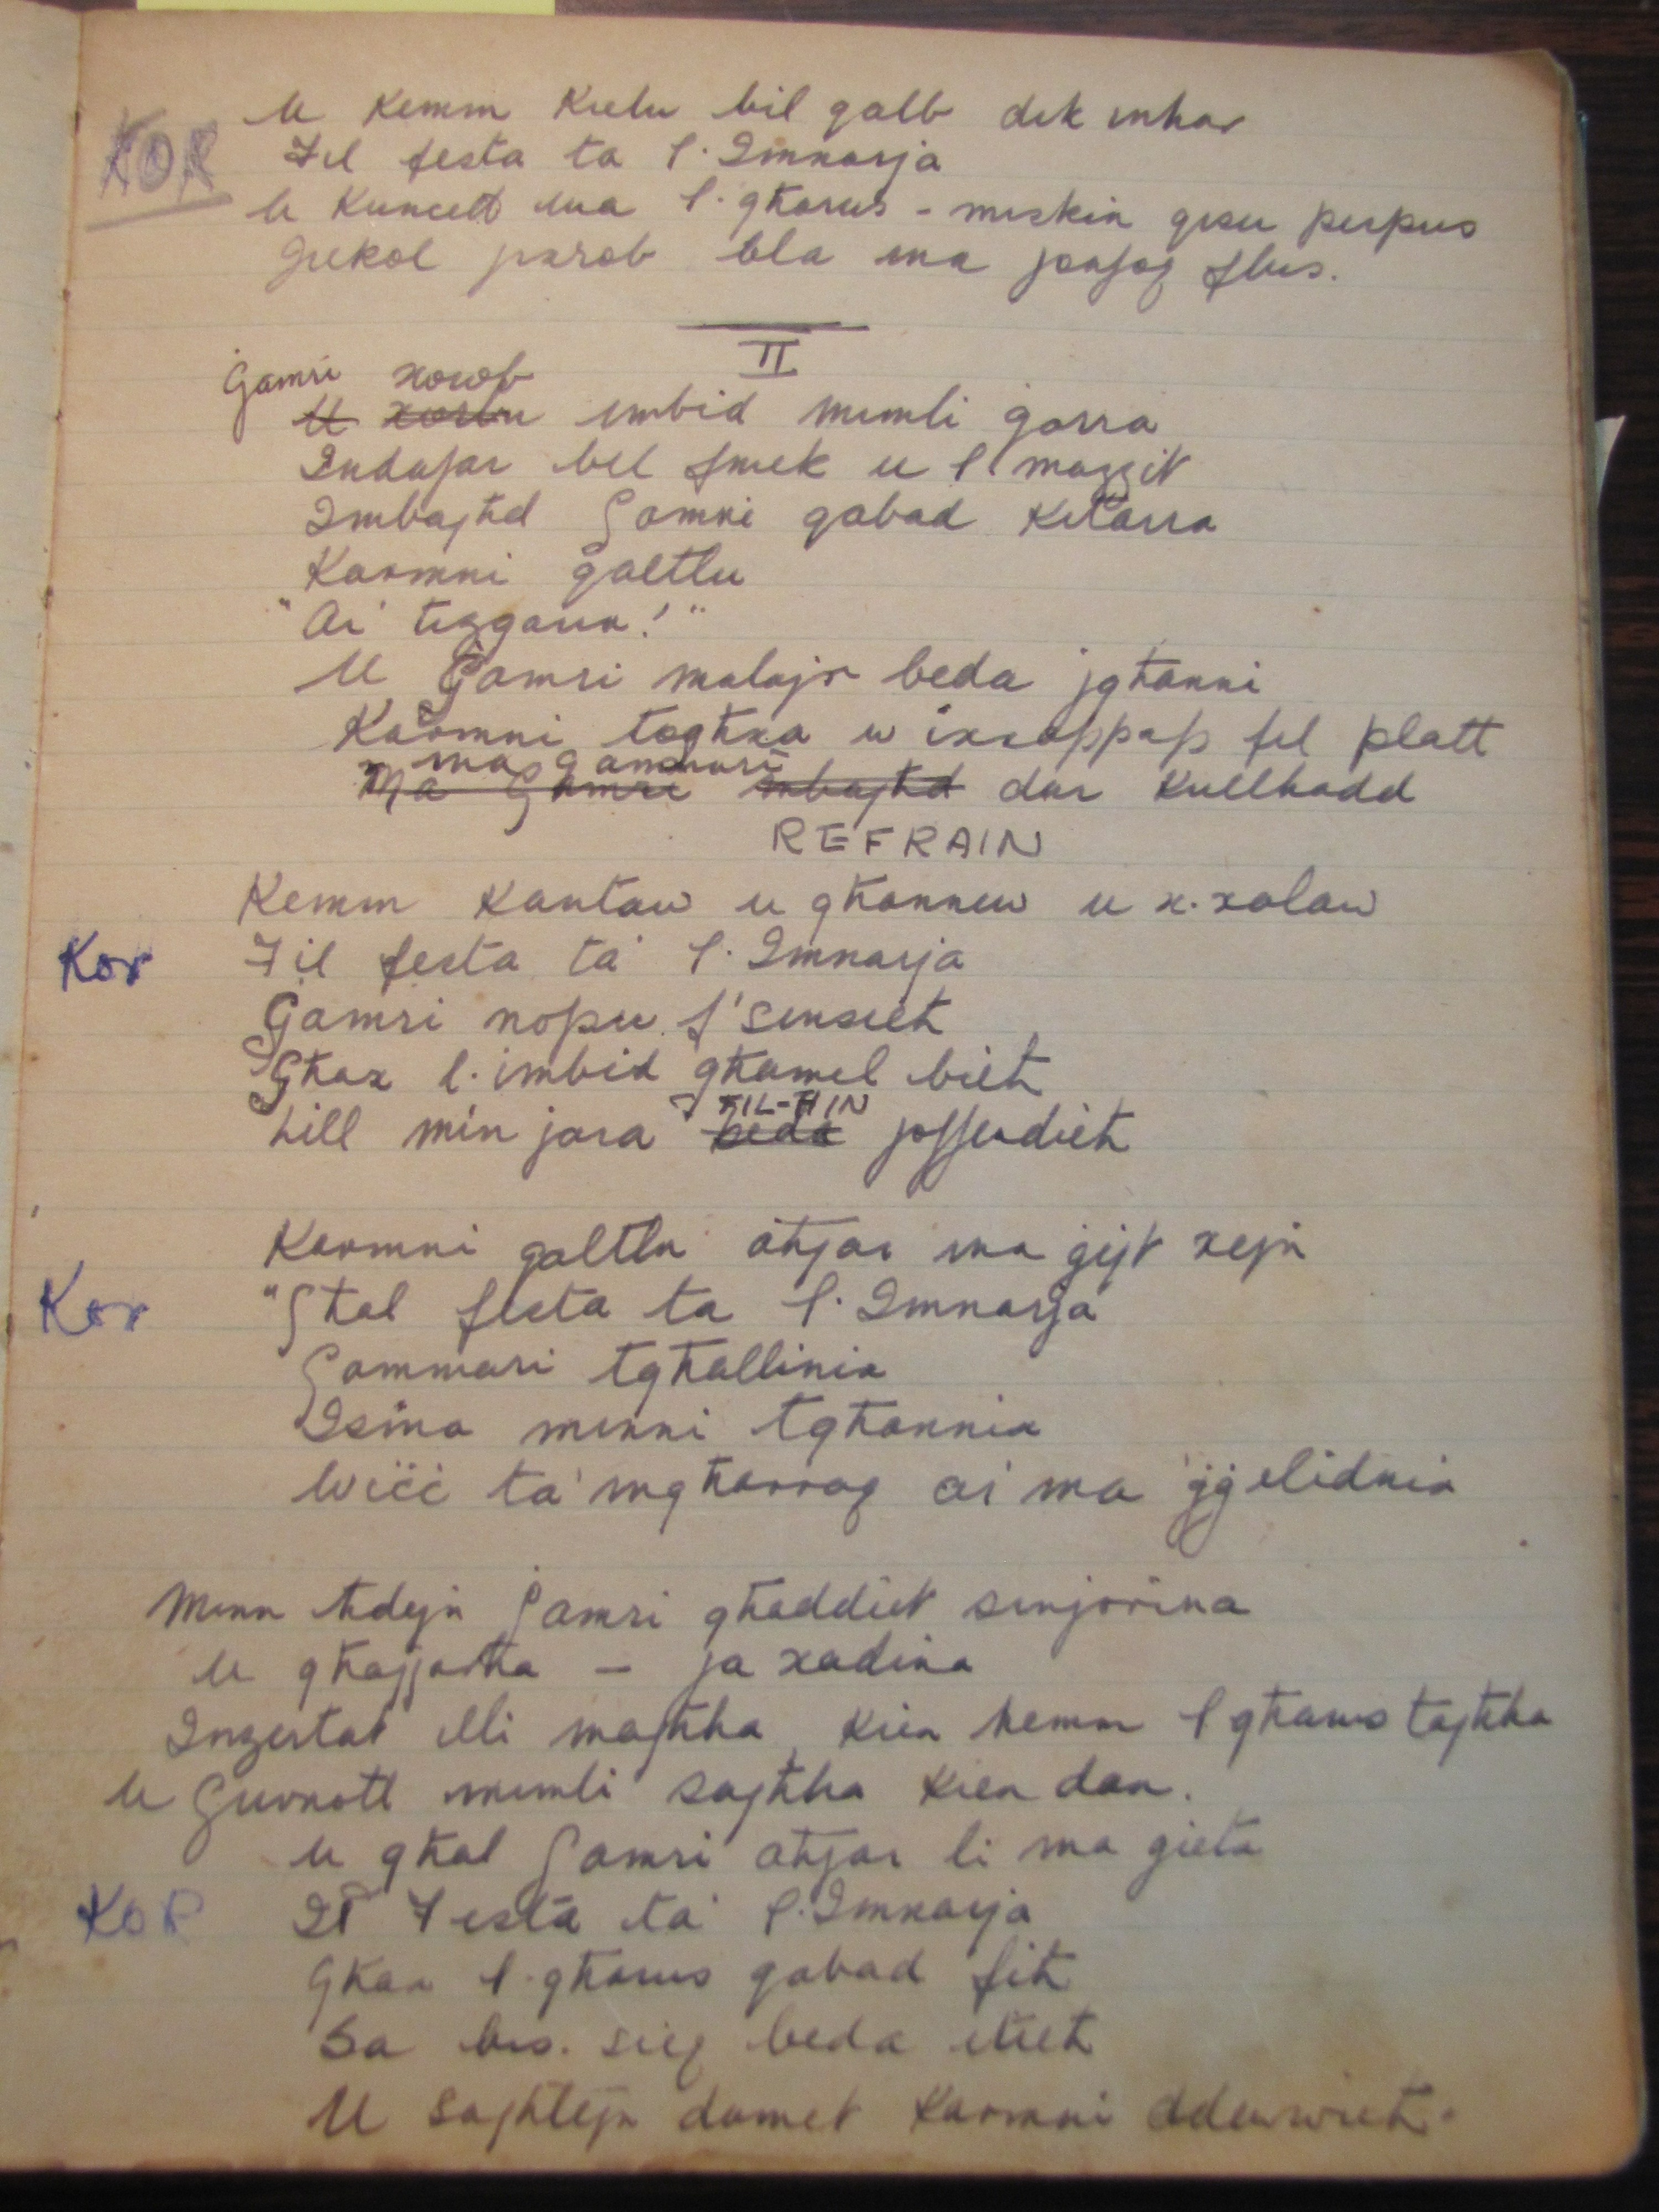 U Kemm Kielu bil qalb dik inhar
KOR Fil festa ta l. Imnarja
U Kuncett ma l. għarus - miskin qisu pespus
Jiekol psrab bla ma jonfoq flus.
II
Ġamri xorob
U xorbu imbid mimli ġarra
Indafar bil fniek u l. mazzit
Imbagħd Ġamri qabad Kitarra
Karmni qaltlu
"Ai tisgaun!"
U Ġamri malajr beda jgħanni
Karmni togħxa u ixxappap fil platt
ma Ġammari
Ma Ġamri mbagħd dar Kullhadd
REFRAIN
Kemm Kantaw u għannew u x. xalaw
Kor Fil festa ta' l. Imnarja
Ġamri nopu f'sensieħ
Għax l. imbid għamel bieħ
Lill min jara FIL-ĦIN beda joffendieħ
Karmni qaltlu aħjar ma ġejt xejn
Kor "Għal festa ta l. Imnarja
Ġammari tgħallinix
Isma minni tgħannix
Wiċċ ta' mgħarraq ai ma jġelidnix
Minn ħdejn Ġamri għaddiet sinjorina
U għajjatha - ja xadina
Inzertat illi magħha Kien hemm l għarus tagħha
U Ġurnott mimli saħħa Kien dan.
U għal Ġamri aħjar li ma ġieta
KOR Il Festa ta' l. Imnarja
Għax l. għarus qabad fih
Sa bis. sieq beda itieħ
U sagħtejn damet Karmni ddewwieħ.